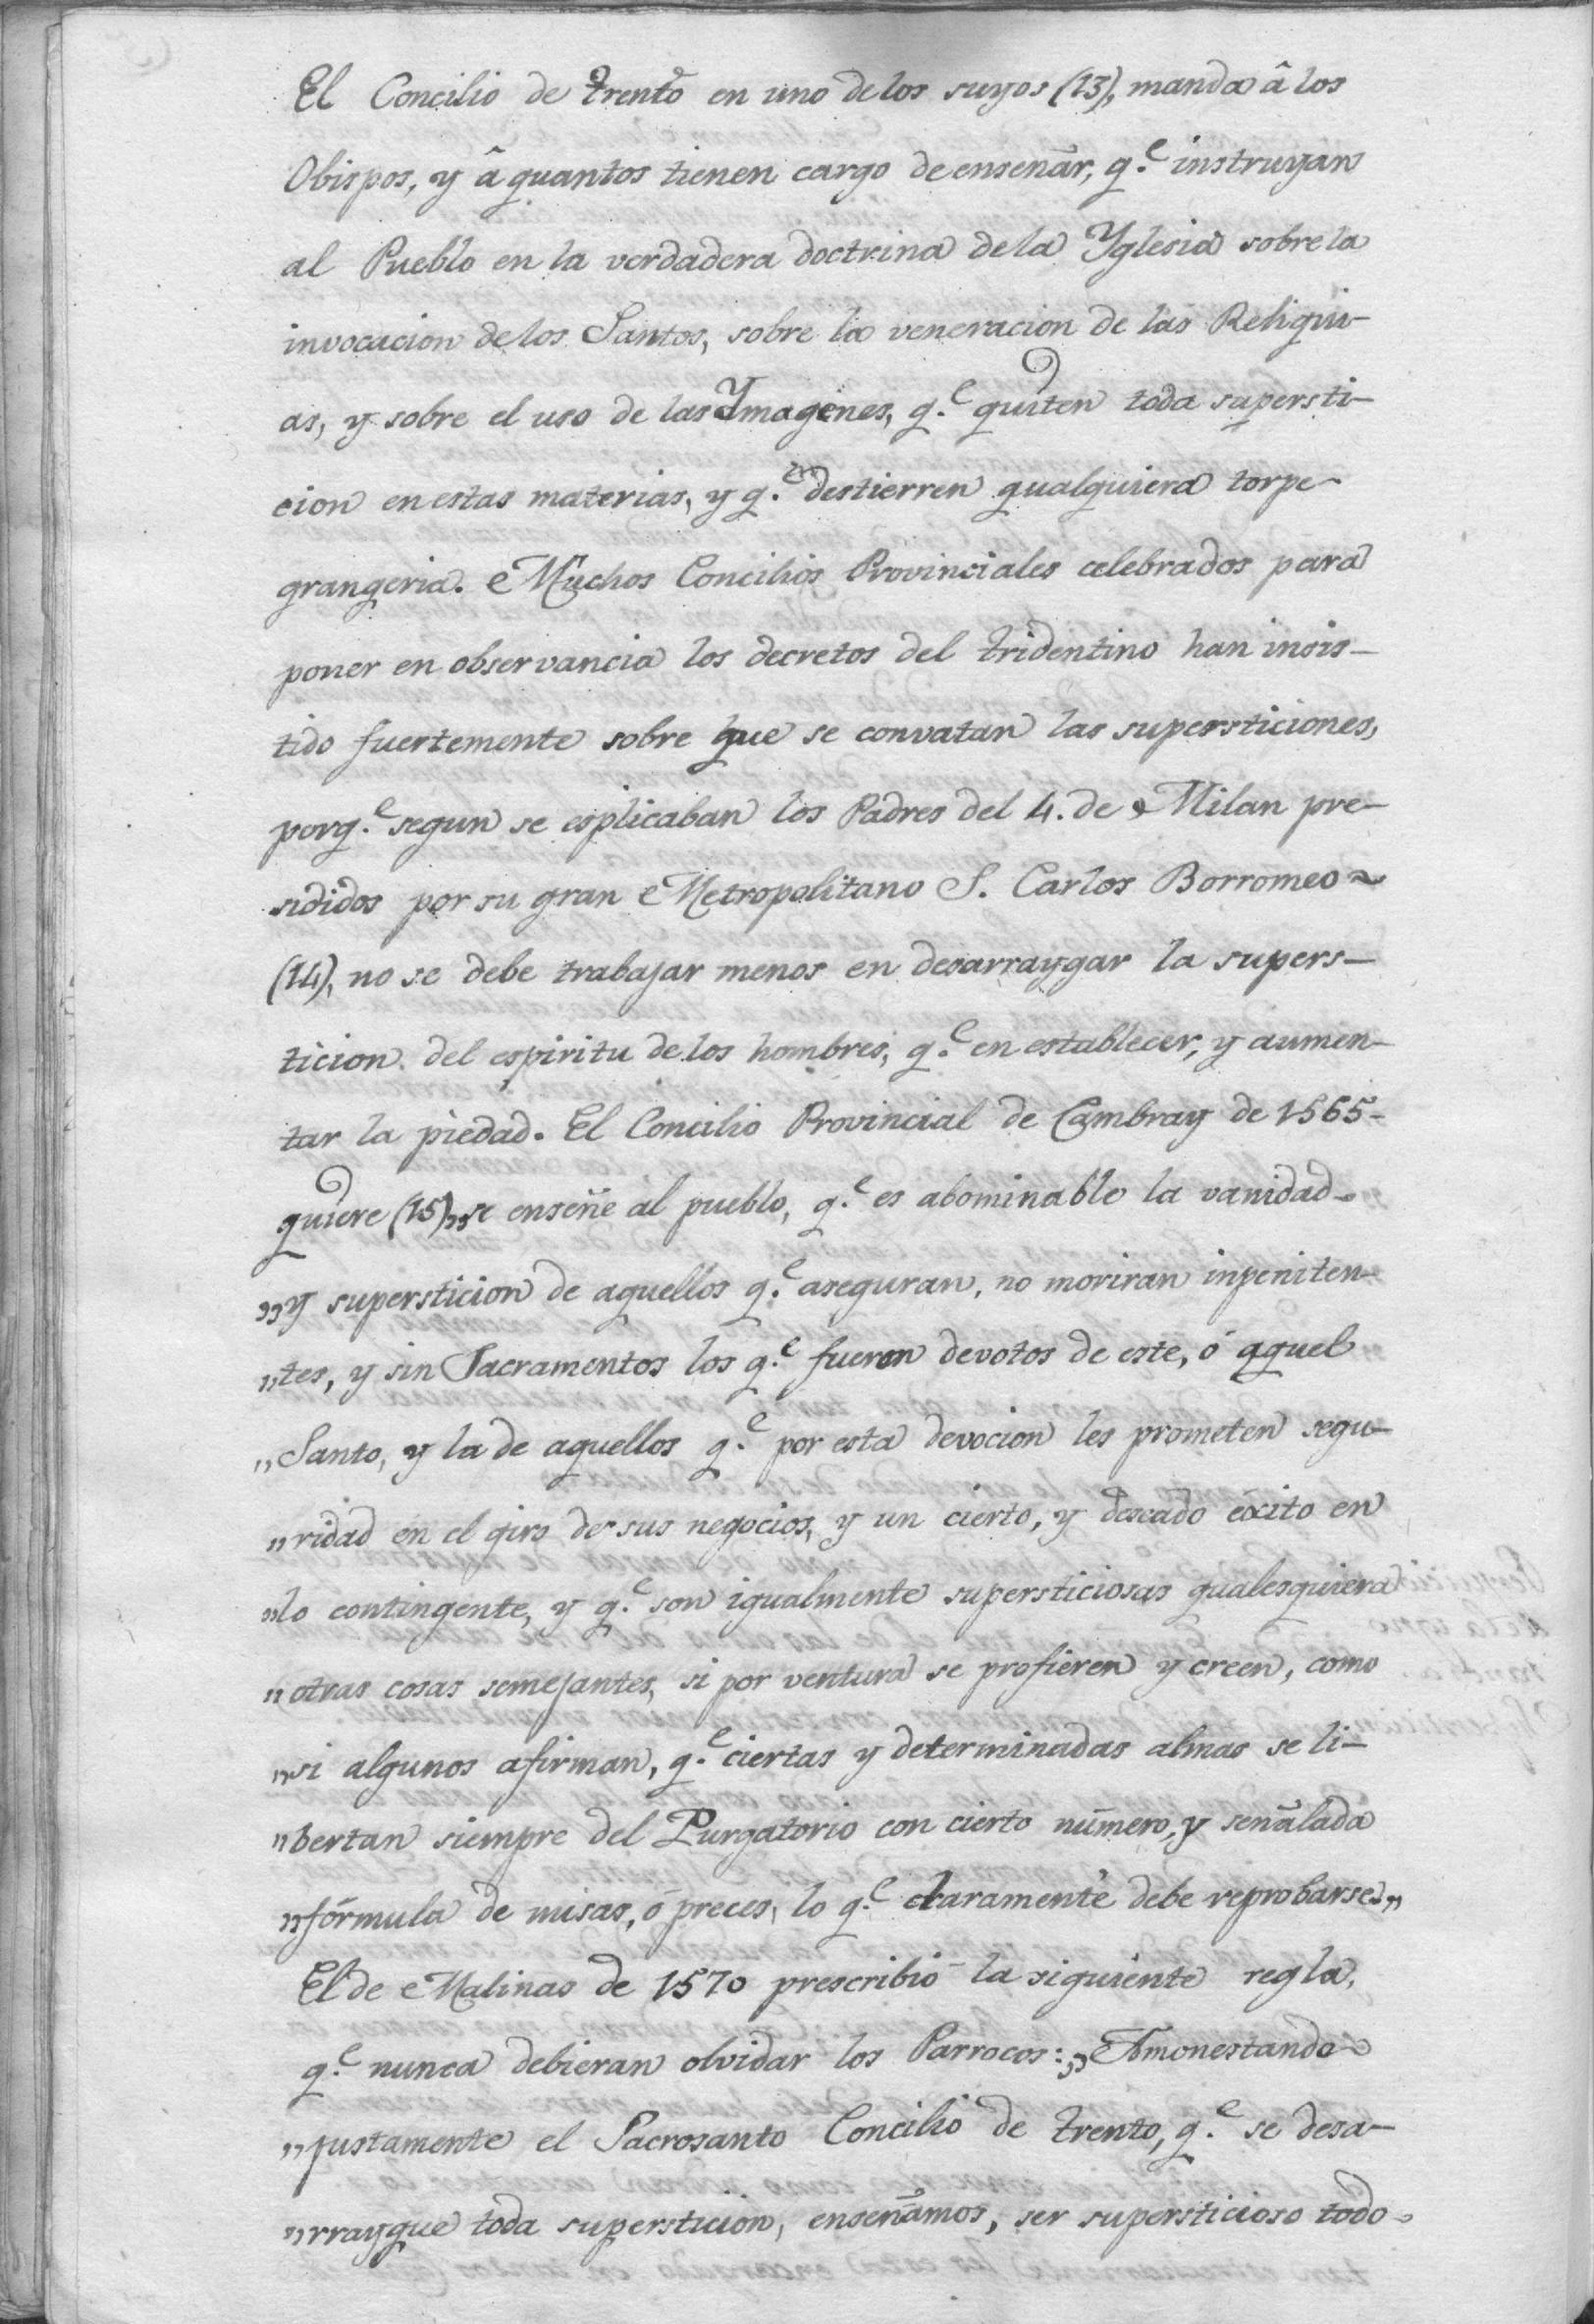 El Concilio de Trento en uno de los suyos (13), manda â los
Obispos, y â quantos tienen cargo de enseñar, q.e instruyan
al Pueblo en la verdadera doctrina de la Yglesia sobre la
invocacion de los Santos, sobre la veneracion de las Reliqui-
as, y sobre el uso de las Ymagenes, q.e quiten toda supersti-
cion en estas materias, y q.e destierren qualquiera torpe
grangeria. Muchos Concilios Provinciales celebrados para
poner en observancia los decretos del tridentino han insis-
tido fuertemente sobre que se convatan las supersticiones,
porq.e segun se esplicaban los Padres del 4. de Milan pre-
sididos por su gran Metropolitano S. Carlos Borromeo
(14), no se debe trabajar menos en desarraygar la supers-
ticion del espiritu de los hombres, q.e en establecer, y aumen-
tar la piedad. El Concilio Provincial de Cambray de 1565-
quiere (15) „se enseñe al pueblo, q.e es abominable la vanidad
„y supersticion de aquellos q.e aseguran, no moriran inpeniten-
„tes, y sin Sacramentos los q.e fueron devotos de este, ó aquel
„Santo, y la de aquellos q.e por esta devocion les prometen segu-
„ridad en el giro de sus negocios, y un cierto, y deseado exito en
„lo contingente, y q.e son igualmente supersticiosas qualesquiera
„otras cosas semejantes, si por ventura se profieren y creen, como
„si algunos afirman, q.e ciertas y determinadas almas se li-
„bertan siempre del Purgatorio con cierto número, y señalada
„fórmula de misas, ó preces, lo q.e claramente debe reprobarse„
El de Malinas de 1570 prescribió la siguiente regla,
q.e nunca debieran olvidar los Parrocos: „Amonestando
„justamente el Sacrosanto Concilio de trento, q.e se desa-
„rraygue toda supersticion, enseñamos, ser supersticioso todo